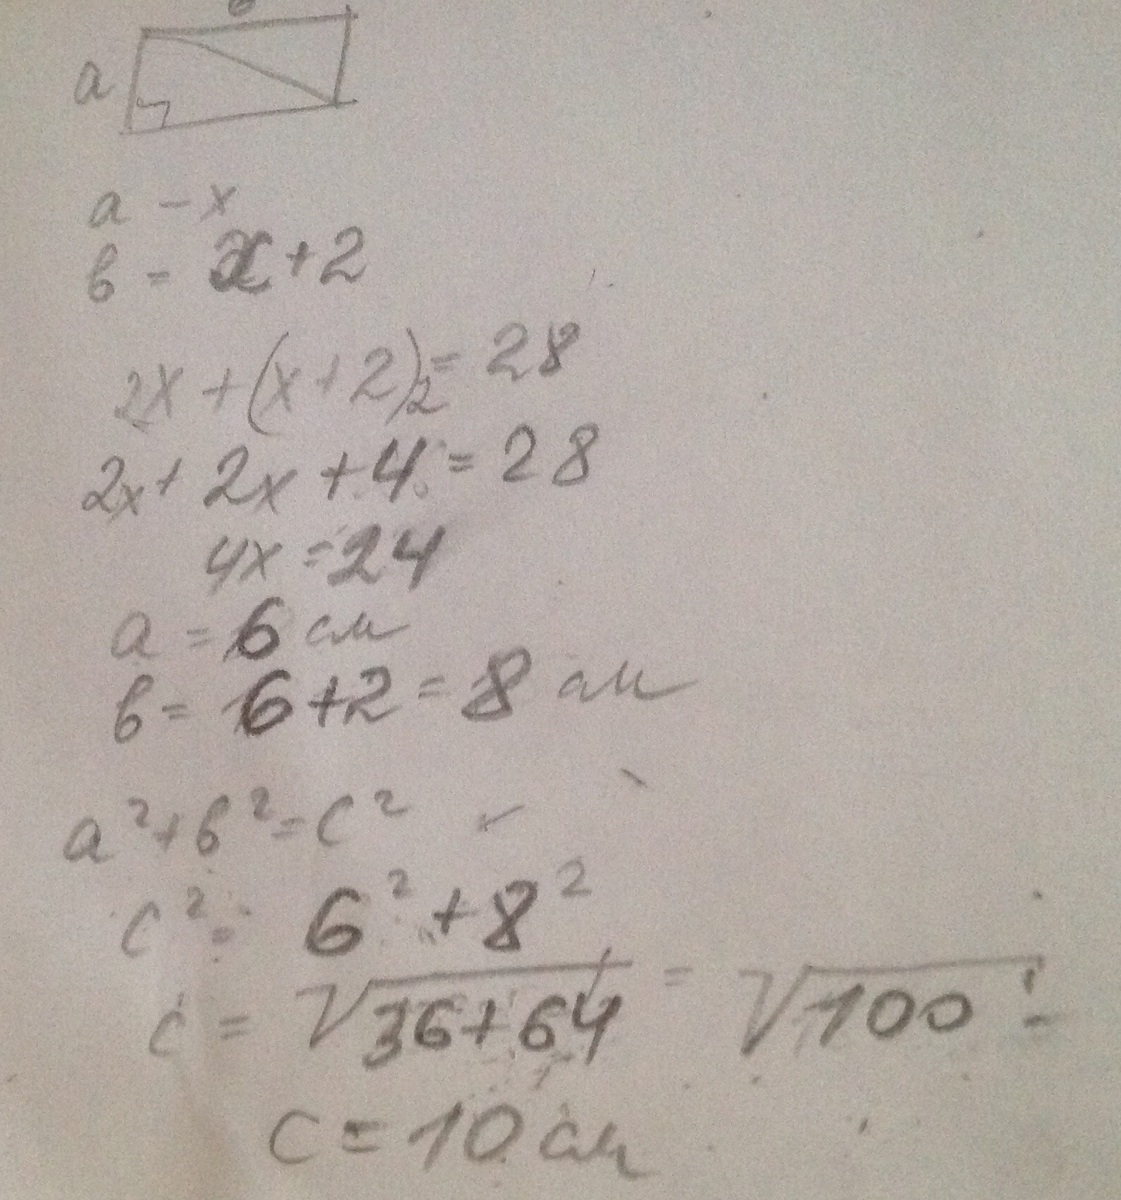 в
a
a - x
в = x+2
2x + (x+2)2 = 28
2x + 2x + 4 = 28
4x = 24
a = 6 см
в = 6+2 = 8 см
a² + в² = c²
c² = 6² + 8²
c = √36+64 = √100 =
c = 10 см